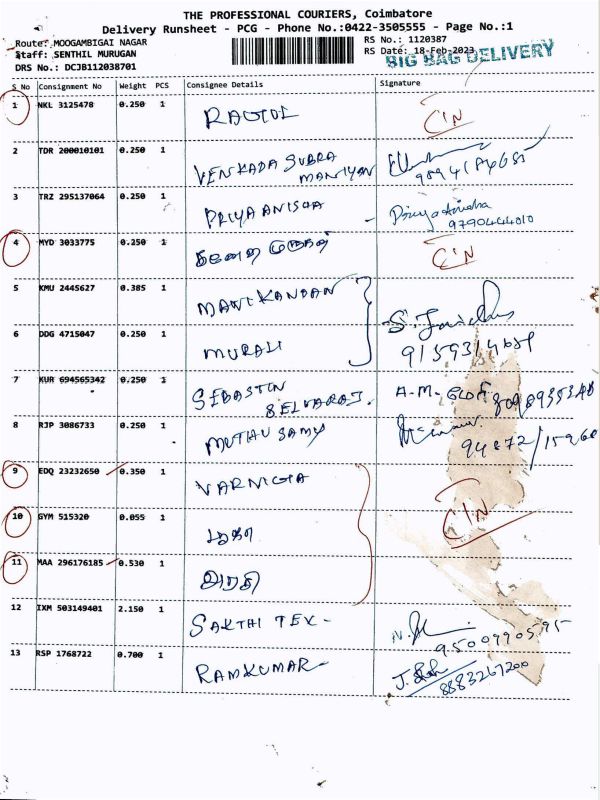 THE PROFESSIONAL COURIERS, Coimbatore
Delivery Runsheet - PCG - Phone No.:0422-3505555 - Page No.:1
Route: MOOGAMBIGAI NAGAR RS No.: 1120387
Staff: SENTHIL MURUGAN RS Date: 18-Feb-2023
DRS No.: DCJB112038701 BIG BAG DELIVERY
S No Consignment No Weight PCS Consignee Details Signature
1 NKL 3125478 0.250 1 RAGUL CIN
2 TDR 200010101 0.250 1 VENKADA SUBRA
MANIYAN
3 TRZ 295137064 0.250 1 PRIYA ANISHA Priya Anisha
9790444010
4 MYD 3033775 0.250 1 CIN
5 KMU 2445627 0.385 1 MANIKANDAN
6 DDG 4715047 0.250 1 MURALI
7 KUR 694565342 0.250 1 SEBASTIN A.M.
SELVARAJ.
8 RJP 3086733 0.250 1 MUTHU SAMY
9 EDQ 23232650 0.350 1 VARNIGIA
10 GYM 515320 0.055 1 CIN
11 MAA 296176185 0.530 1
12 IXM 503149401 2.150 1 SAKTHI TEX - 9500990595
13 RSP 1768722 0.700 1 RAMKUMAR - 8883267200